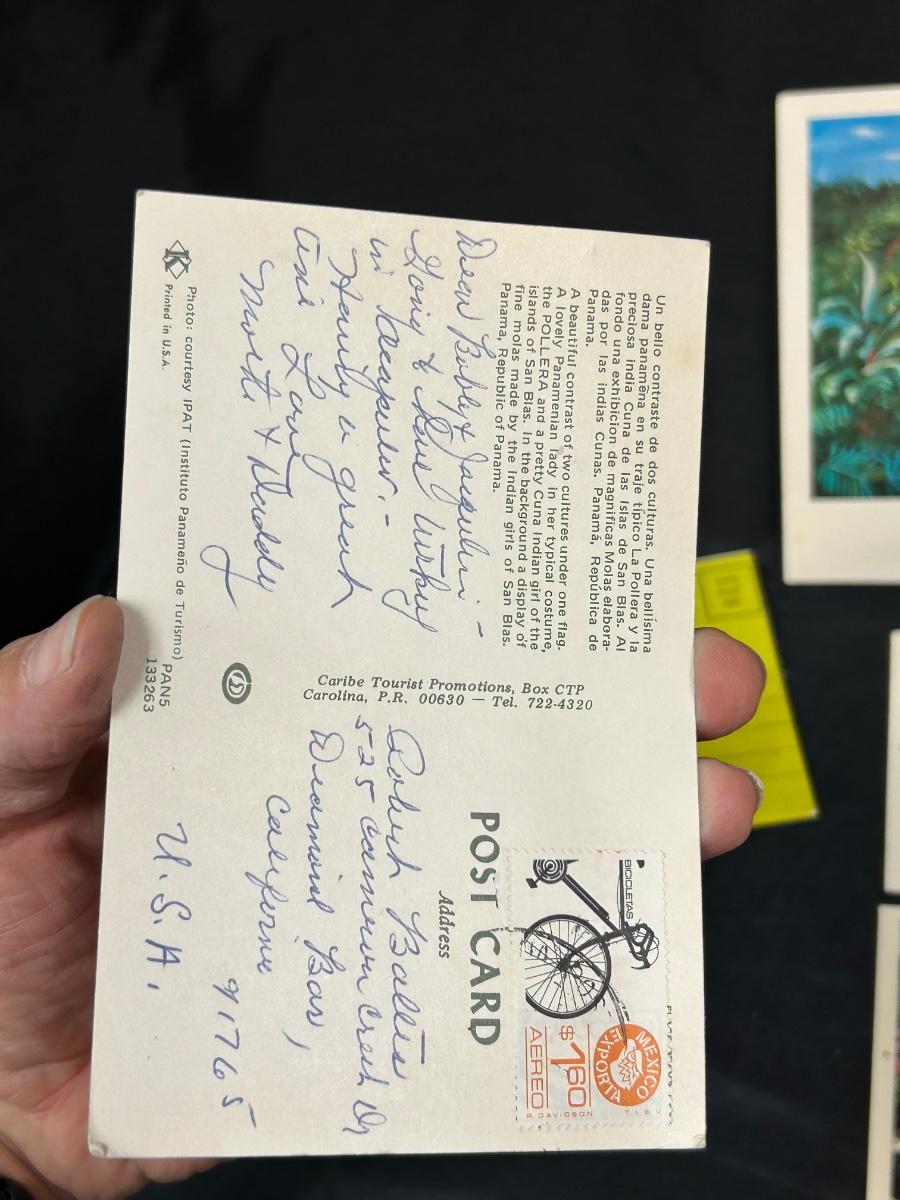 Un bello contraste de dos culturas. Una bellísima
dama panameña en su traje típico La Pollera y la
preciosa india Cuna de las Islas de San Blas. Al
fondo una exhibición de magníficas Molas elabora-
das por las indias Cunas. Panamá, República de
Panama.
A beautiful contrast of two cultures under one flag.
A lovely Panamenian lady in her typical costume,
the POLLERA and a pretty Cuna Indian girl of the
islands of San Blas. In the background a display of
fine molas made by the Indian girls of San Blas.
Panama, Republic of Panama.
Dear Bubby &
Going to
in Acapulco. -
Having a great
time Love
& Daddy
Photo: courtesy IPAT (Instituto Panameño de Turismo)
K Printed in U.S.A.
PAN5
133263
Caribe Tourist Promotions, Box CTP
Carolina, P.R. 00630 — Tel. 722-4320
POST CARD
Address
BICICLETAS
MEXICO
EXPORTA
$1.60
AEREO
R. DAVIDSON
T.I.E.V.
Robert
525 Creek Dr
Diamond Bar,
California
91765
U.S.A.